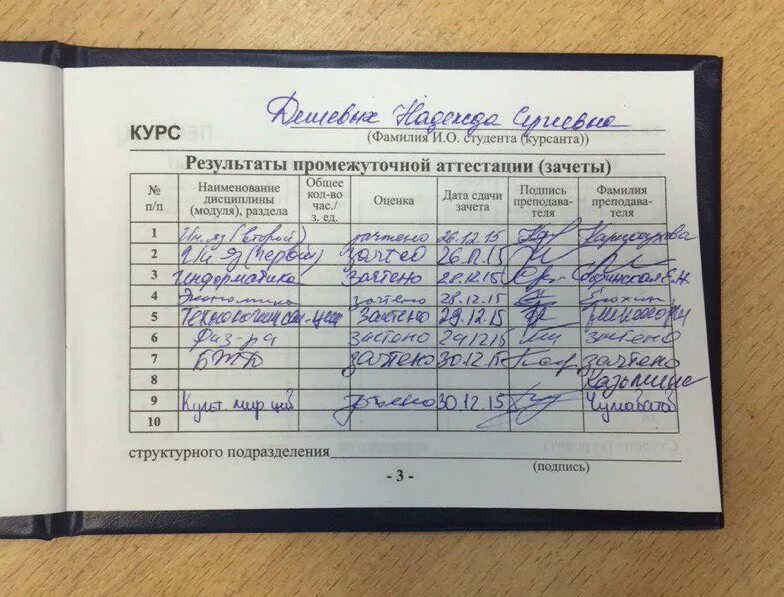 Дешевых Надежда Сергеевна
КУРС
(Фамилия И.О. студента (курсанта))
Результаты промежуточной аттестации (зачеты)
№ п/п Наименование дисциплины (модуля), раздела Общее кол-во час./ з. ед. Оценка Дата сдачи зачета Подпись преподава-теля Фамилия преподава-теля
1 Ин.яз (второй) зачтено 26.12.15
2 Ин яз (первый) зачтено 26.12.15
3 Информатика зачтено 28.12.15
4 Экономика зачтено 28.12.15
5 зачтено 29.12.15
6 Физ-ра зачтено 29.12.15 зачтено
7 БЖД зачтено 30.12.15 зачтено
8
9 Культ мир цив зачтено 30.12.15
10
структурного подразделения
(подпись)
- 3 -